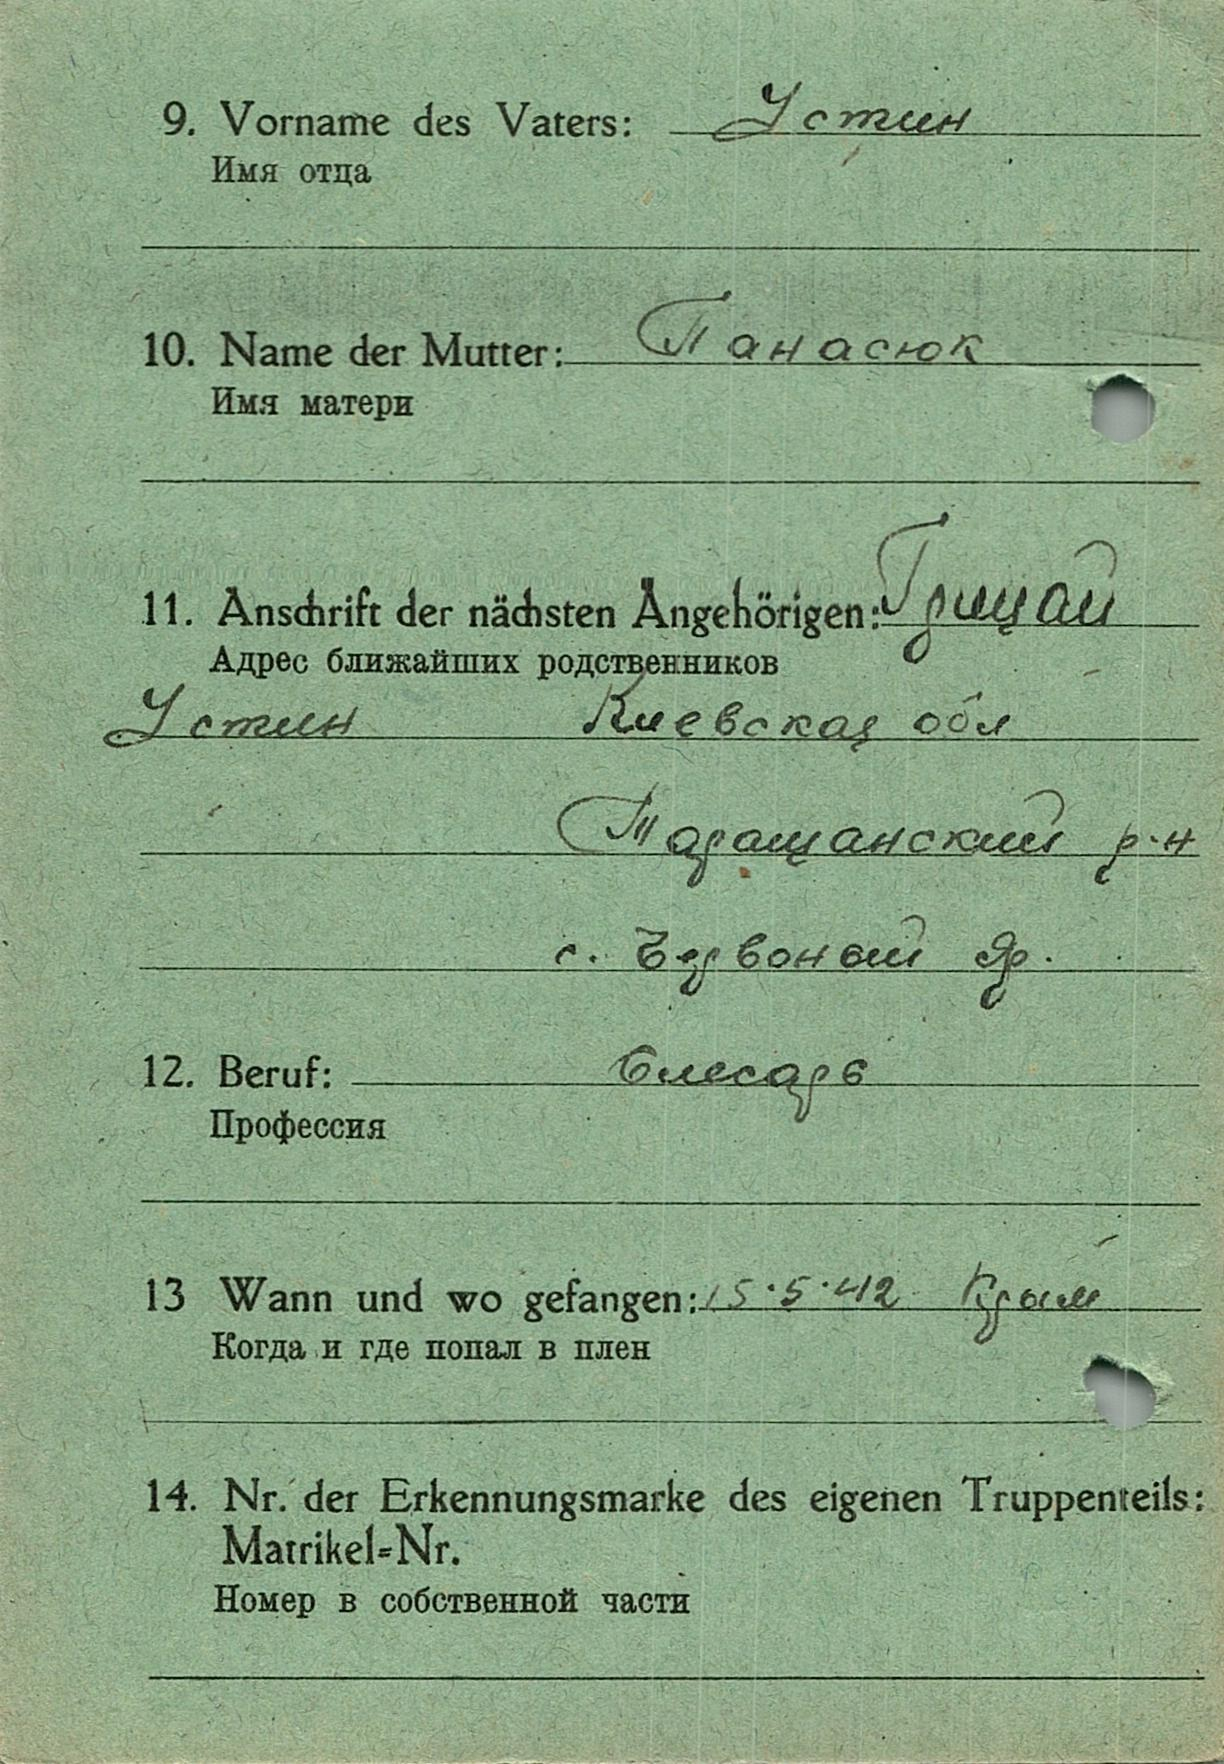 9. Vorname des Vaters: Устин
Имя отца
10. Name der Mutter: Панасюк
Имя матери
11. Anschrift der nächsten Angehörigen: Грицай
Адрес ближайших родственников
Устин Киевская обл
Таращанский р-н
с. Червоный Яр.
12. Beruf: Слесарь
Профессия
13 Wann und wo gefangen: 15.5.42 Крым
Когда и где попал в плен
14. Nr. der Erkennungsmarke des eigenen Truppenteils:
Matrikel=Nr.
Номер в собственной части